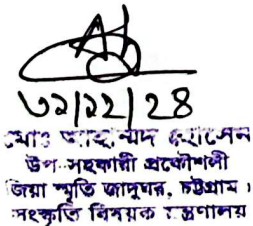 ৩২|২২|28
মোঃ আহাম্মদ হোসেন
উপ-সহকারী প্রকৌশলী
জিয়া স্মৃতি জাদুঘর, চট্টগ্রাম।
সংস্কৃতি বিষয়ক মন্ত্রণালয়